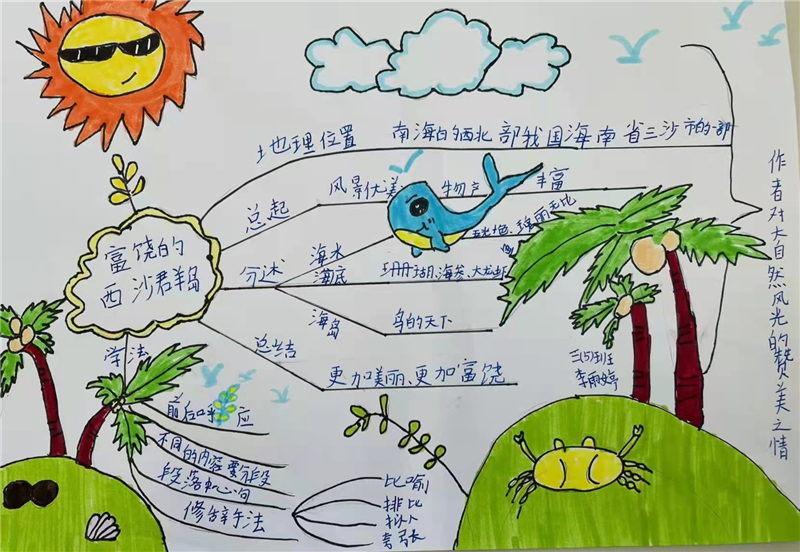 富饶的
西沙群岛
地理位置
南海的西北部我国海南省三沙市的一部
总起
风景优美
物产
丰富
分述
海水
瑰丽无比
海底
珊瑚、海参、大龙虾
海岛
鸟的天下
总结
更加美丽、更加富饶
学法
前后呼应
不同的内容要分段
段落中心句
修辞手法
比喻
排比
拟人
夸张
三(5)班
李雨婷
作者对大自然风光的赞美之情